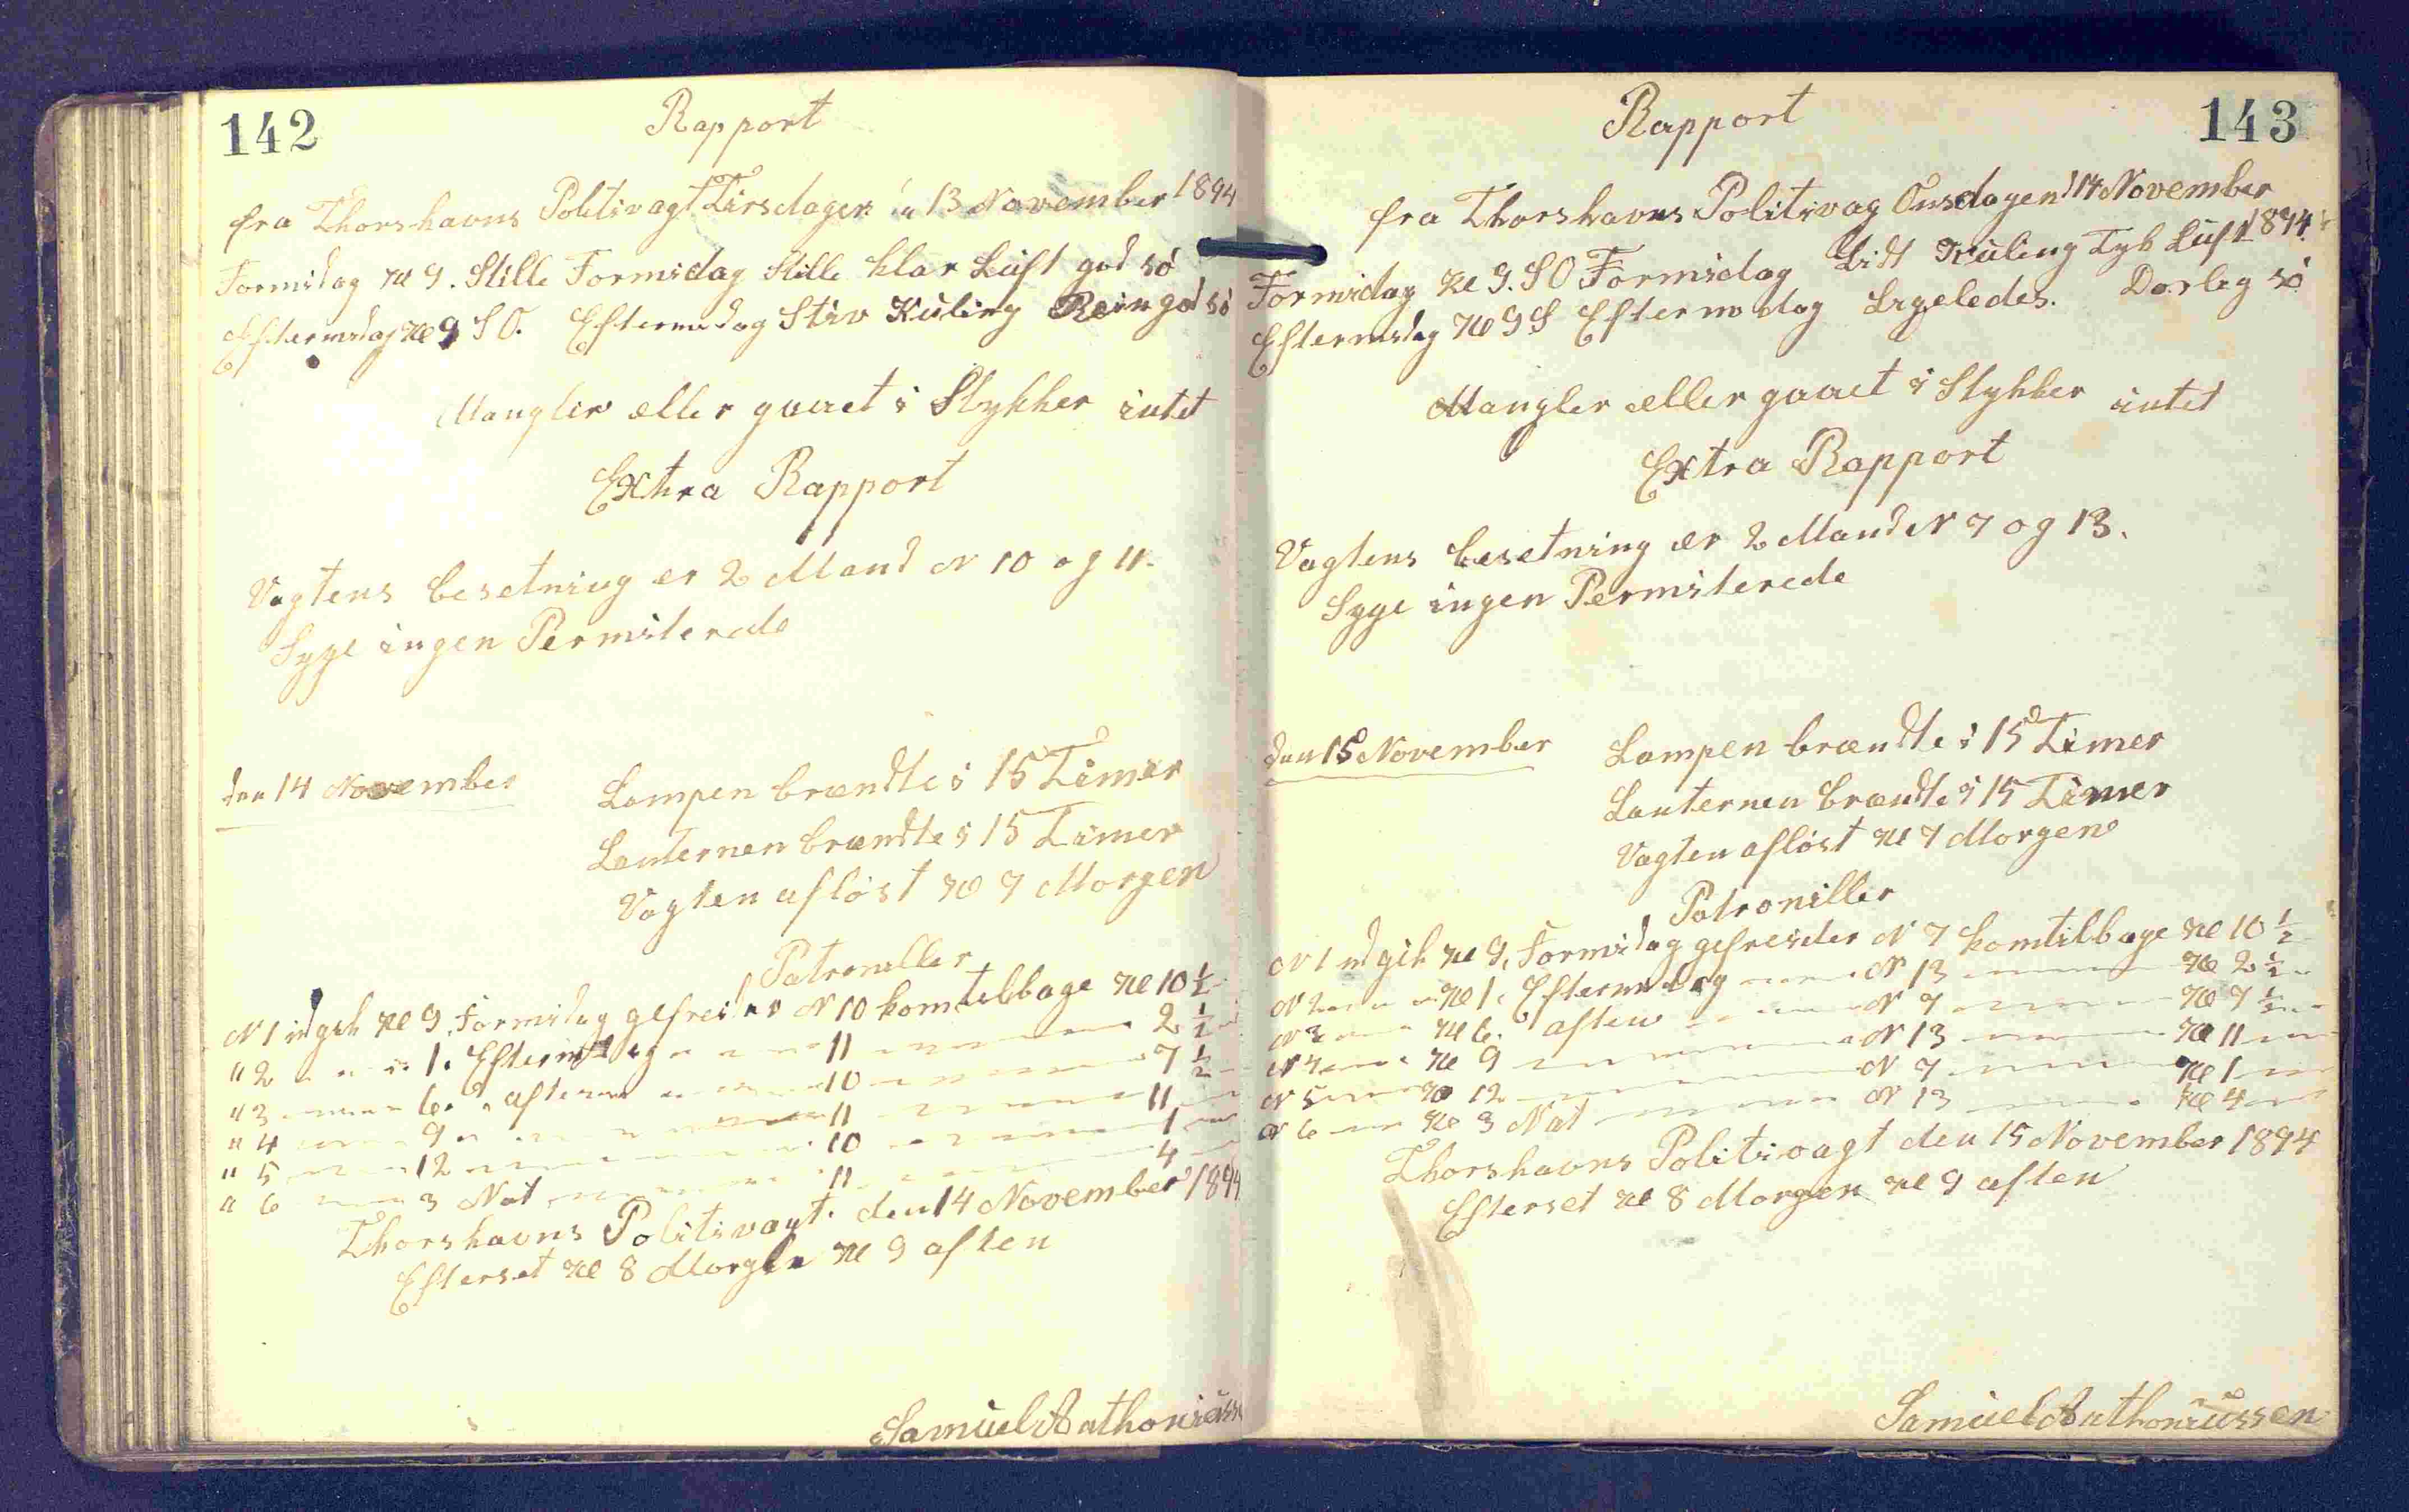 142
Rapport
fra Thorshavns Politivagt Tirsdagen 13 November 1894
Formidag Kl 9. Stille Formidag Stille klar Luft god sö
Eftermidag Kl 9 SO. Eftermidag Stiv Kuling Rein god sö
Mangler eller gaaet i Stykker intet
Extra Rapport
Vagtens besetning er 2 Mand N 10 og 11.
Syge ingen Permiterede
den 14 November
Lampen brændte i 15 Timer
Lanternen brændte i 15 Timer
Vagten aflöst Kl 7 Morgen
Patroniller
N 1 udgik Kl 9, Formidag gefreider N 10 kom tilbage Kl 10 1/2
" 2 1. Eftermidag 11 2 1/2
" 3 6. aften 10 7 1/2
" 4 9 11 11
" 5 12 10 1
" 6 3 Nat 11 4
Thorshavns Politivagt. den 14 November 1894
Efterset Kl 8 Morgen Kl 9 aften
Samuel Anthoniussen
143
Rapport
fra Thorshavns Politivag Onsdagen 14 November
1894.
Formidag Kl 9. SO Formidag Lidt Kuling Tyk Luft
Eftermidag Kl 9 S Eftermidag Ligeledes. Dorleg sö
Mangler eller gaaet i Stykker intet
Extra Rapport
Vagtens besetning er 2 Mand N 7 og 13.
Syge ingen Permiterede
den 15 November
Lampen brændte i 15 Timer
Lanternen brændte i 15 Timer
Vagten aflöst Kl 7 Morgen
Patroniller
N 1 udgik Kl 9, Formidag gefreider N 7 kom tilbage Kl 10 1/2
N 2 Kl 1. Eftermidag N 13 Kl 2 1/2
N 3 Kl 6. aften N 7 Kl 7 1/2
N 4 Kl 9 N 13 Kl 11
N 5 Kl 12 N 7 Kl 1
N 6 Kl 3 Nat N 13 Kl 4
Thorshavns Politivagt den 15 November 1894
Efterset Kl 8 Morgen Kl 9 aften
Samuel Anthoniussen